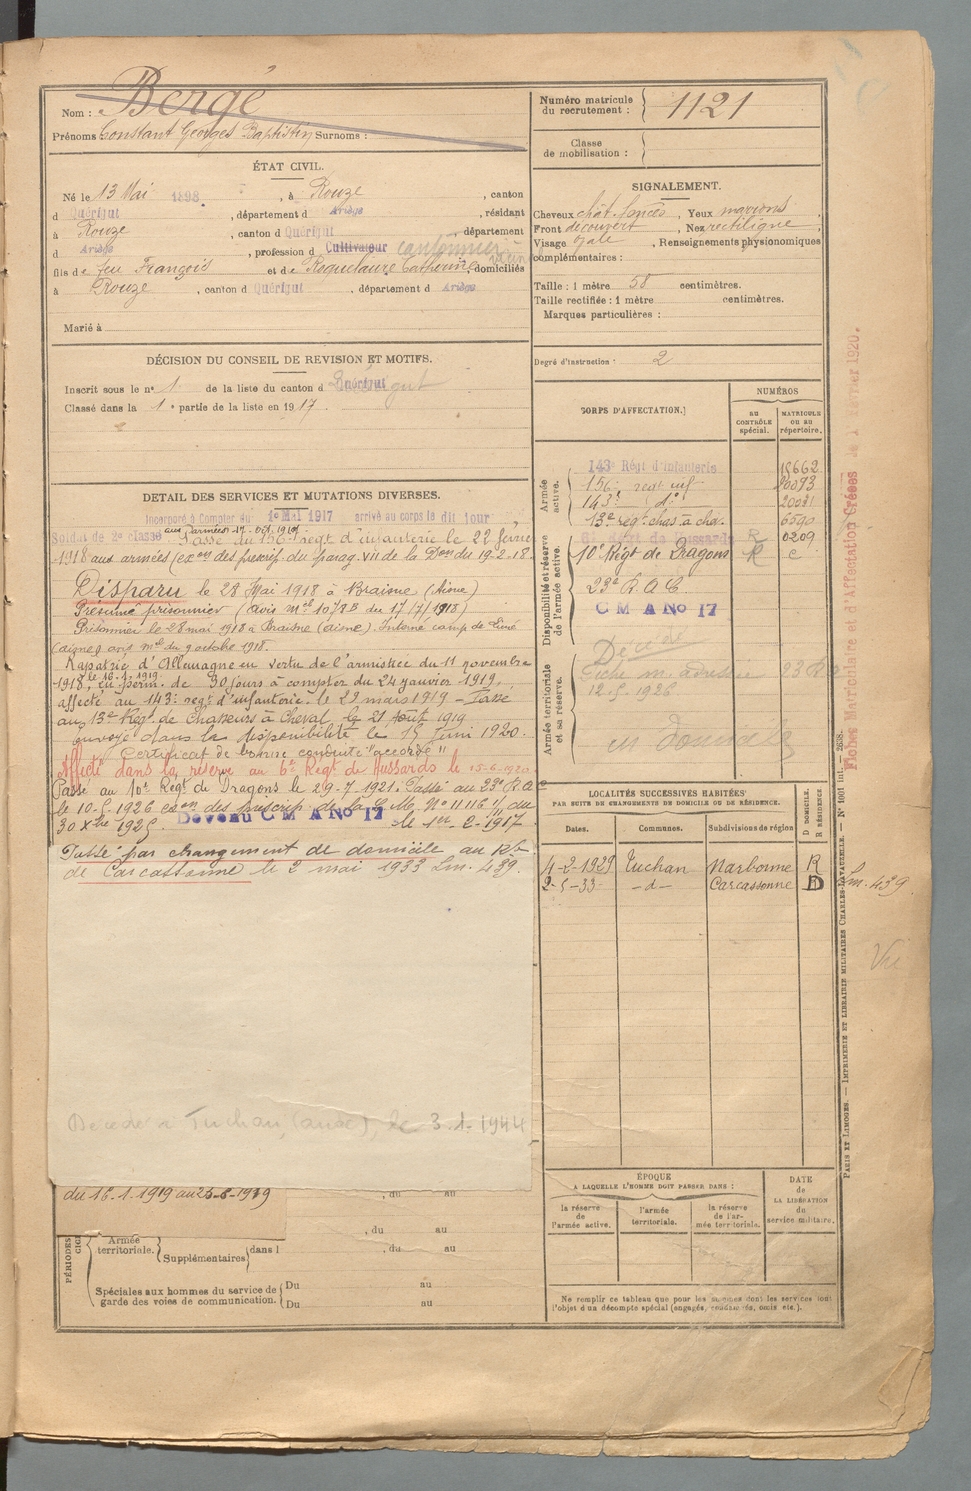 Nom : Bergé
Prénoms Constant Georges Baptistin Surnoms :
Numéro matricule du recrutement : 1121
Classe de mobilisation :
ÉTAT CIVIL.
Né le 13 Mai 1898, à Rouze, canton
d Quérigut, département d Ariège, résidant
à Rouze, canton d Quérigut, département
d Ariège, profession d Cultivateur cantonnier
fils de feu François et de Roquelaure Catherine, domiciliés
à Rouze, canton d Quérigut, département d Ariège
Marié à
SIGNALEMENT.
Cheveux chât. foncés, Yeux marrons,
Front découvert, Nez rectiligne,
Visage ovale, Renseignements physionomiques
complémentaires :
Taille : 1 mètre 58 centimètres.
Taille rectifiée : 1 mètre centimètres.
Marques particulières :
Degré d'instruction : 2
DÉCISION DU CONSEIL DE REVISION ET MOTIFS.
Inscrit sous le n° 1 de la liste du canton d Quérigut
Classé dans la 1e partie de la liste en 1917.
DETAIL DES SERVICES ET MUTATIONS DIVERSES.
Incorporé à Compter du 1e Mai 1917 arrivé au corps le dit jour
Soldat de 2e classe Passé au 156e régt d'infanterie le 22 février
1918 aux armées (exon des prescrip. du parag. VII de la Don du 19-2-18
Disparu le 28 Mai 1918 à Braisne (Aisne)
Présumé prisonnier (Avis Mel 1078B du 17/7/1918)
Prisonnier le 28 mai 1918 à Braisne (aisne). Interné camp de
(aisne) avis mel du 9 octobre 1918.
Rapatrié d'Allemagne en vertu de l'armistice du 11 novembre
le 16.1.1919
1918, en perm. de 30 jours à compter du 24 janvier 1919,
affecté au 143e régt d'infanterie le 29 mars 1919 - Passé
au 13e Régt de Chasseurs à Cheval le 21 Août 1919
envoyé dans la disponibilité le 15 Juin 1920.
Certificat de bonne conduite "accordé"
Affecté dans la réserve au 6e Régt de Hussards le 15-6-1920
Passé au 10e Régt de Dragons le 29-7-1921. Passé au 23e R.A.C
le 10-5-1926 exon des prescrip. de la C.M. N° 11116 1/11 du
30 Xbre 1925. Devenu C M A No 17 le 1er
Passé par changement de domicile au
de Carcassonne le 2 mai 1933 Lm. 439.
Décédé à Tuchan (aude), le 3.1.1944
du 16.1.1919 au 23-8-1919
, du au
, du au
PÉRIODES
Armée territoriale. Supplémentaires dans l , du au
Spéciales aux hommes du service de garde des voies de communication. Du au
Du au
CORPS D'AFFECTATION.
NUMÉROS
au CONTRÔLE spécial.
MATRICULE OU AU répertoire.
Armée active.
143e Régt d'Infanterie 18662
156e régt inf 10093
143e do
13e régt chas. à chev. 6590
Disponibilité et réserve de l'armée active.
6e Régt de Hussards R 0209
10e Régt de Dragons R
23e R.A.C.
C M A No 17
Armée territoriale et sa réserve.
Décédé
Fiche m. adressée 23 R.A
12-5-1926
LOCALITÉS SUCCESSIVES HABITÉES
PAR SUITE DE CHANGEMENTS DE DOMICILE OU DE RÉSIDENCE.
Dates. Communes. Subdivisions de région D DOMICILE. R RÉSIDENCE
4-2-1929 Tuchan Narbonne R
2-5-33 -d- Carcassonne D Lm. 439
ÉPOQUE
A LAQUELLE L'HOMME DOIT PASSER DANS :
la réserve de l'armée active.
l'armée territoriale.
la réserve de l'armée territoriale.
DATE de LA LIBÉRATION du service militaire.
Ne remplir ce tableau que pour les hommes dont les services font
l'objet d'un décompte spécial (engagés, condamnés, omis etc.).
Fiches Matriculaire et d'Affectation Créées le 1 Février 1920.
PARIS ET LIMOGES. — IMPRIMERIE ET LIBRAIRIE MILITAIRES CHARLES-LAVAUZELLE. — N° 1001 int. — 2638.
Vu